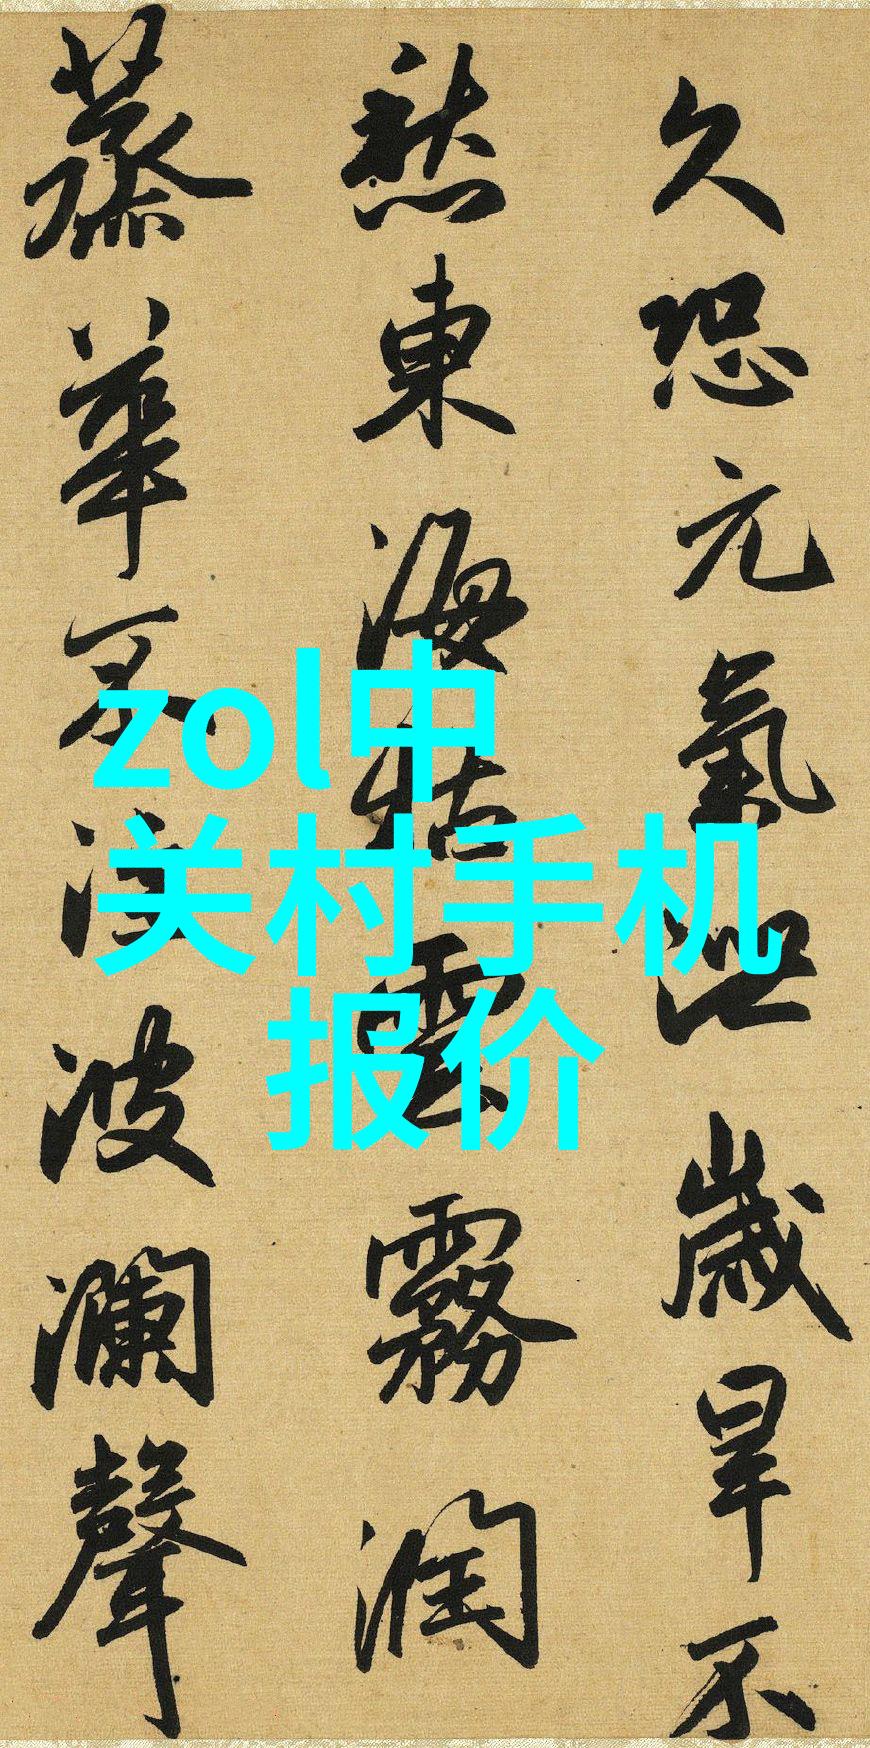 久恐元氣泄歲旱不
愁東海枯雲霧潤
蒸華不注波瀾聲
zol中
关村手机
报价